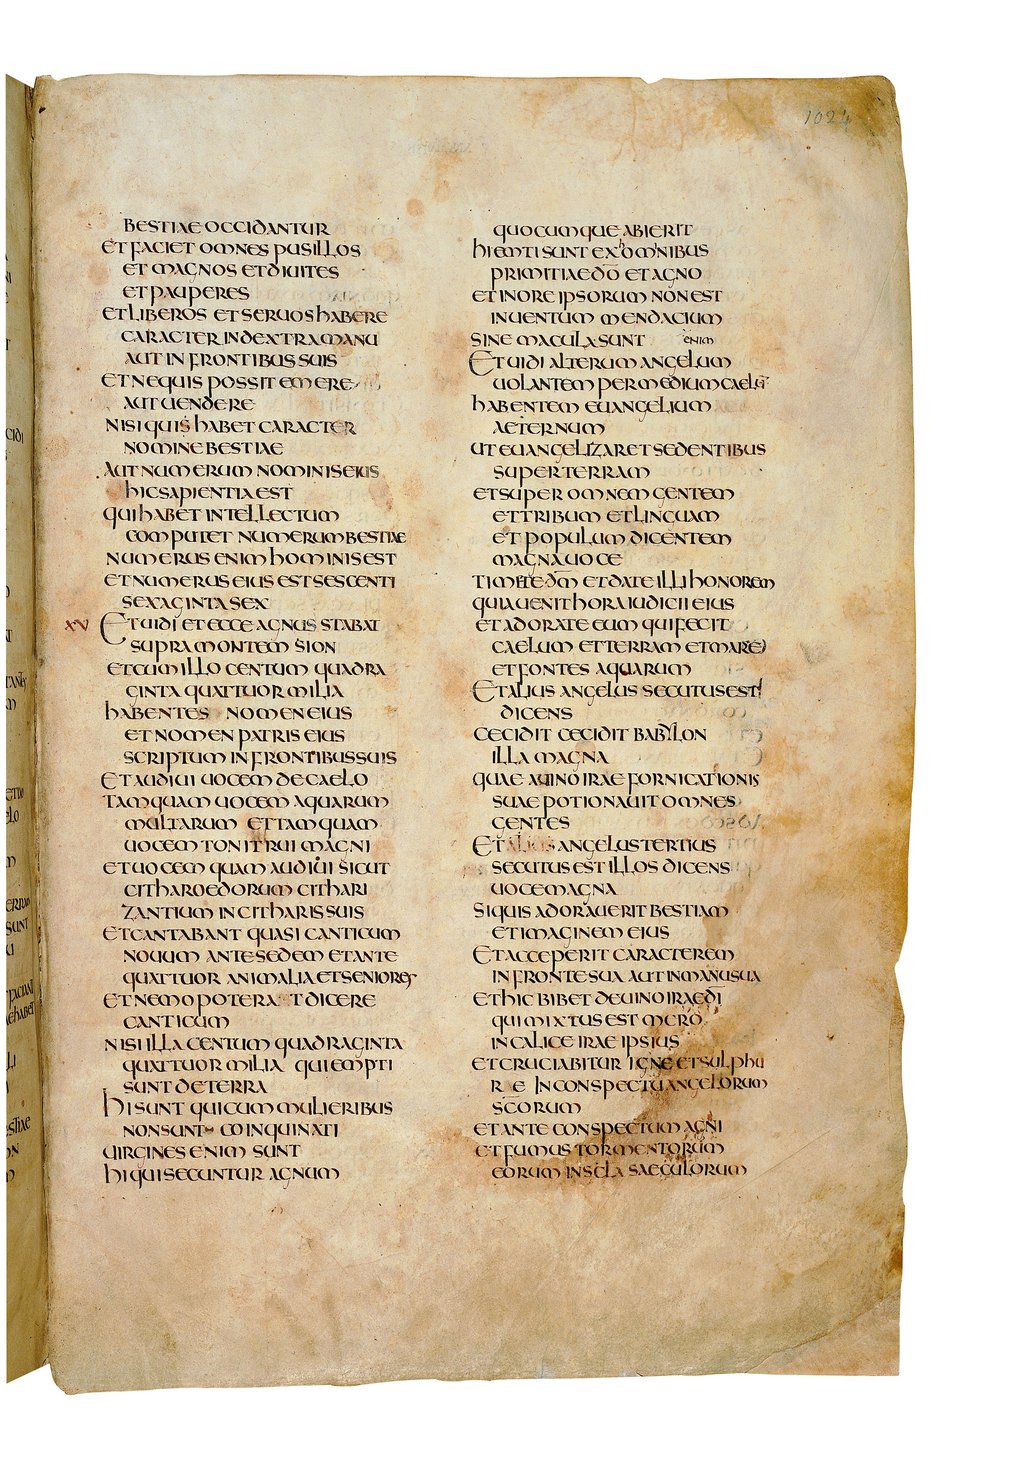 1024
BESTIAE OCCIDANTUR
ET FACIET OMNES PUSILLOS
ET MAGNOS ET DIUITES
ET PAUPERES
ET LIBEROS ET SERUOS HABERE
CARACTER IN DEXTRA MANU
AUT IN FRONTIBUS SUIS
ET NE QUIS POSSIT EMERE
AUT UENDERE
NISI QUIS HABET CARACTER
NOMINE BESTIAE
AUT NUMERUM NOMINIS EIUS
HIC SAPIENTIA EST
QUI HABET INTELLECTUM
COMPUTET NUMERUM BESTIAE
NUMERUS ENIM HOMINIS EST
ET NUMERUS EIUS EST SESCENTI
SEXAGINTA SEX
XV ET UIDI ET ECCE AGNUS STABAT
SUPRA MONTEM SION
ET CUM ILLO CENTUM QUADRA
GINTA QUATTUOR MILIA
HABENTES NOMEN EIUS
ET NOMEN PATRIS EIUS
SCRIPTUM IN FRONTIBUS SUIS
ET AUDIUI UOCEM DE CAELO
TAMQUAM UOCEM AQUARUM
MULTARUM ET TAMQUAM
UOCEM TONITRUI MAGNI
ET UOCEM QUAM AUDIUI SICUT
CITHAROEDORUM CITHARI
ZANTIUM IN CITHARIS SUIS
ET CANTABANT QUASI CANTICUM
NOUUM ANTE SEDEM ET ANTE
QUATTUOR ANIMALIA ET SENIORES
ET NEMO POTERAT DICERE
CANTICUM
NISI ILLA CENTUM QUADRAGINTA
QUATTUOR MILIA QUI EMPTI
SUNT DE TERRA
HI SUNT QUI CUM MULIERIBUS
NON SUNT COINQUINATI
UIRGINES ENIM SUNT
HI QUI SECUNTUR AGNUM
QUOCUMQUE ABIERIT
HI EMTI SUNT EX HOMINIBUS
PRIMITIAE D̅O̅ ET AGNO
ET IN ORE IPSORUM NON EST
INUENTUM MENDACIUM
SINE MACULA SUNT ENIM
ET UIDI ALTERUM ANGELUM
UOLANTEM PER MEDIUM CAELU̅
HABENTEM EUANGELIUM
AETERNUM
UT EUANGELIZARET SEDENTIBUS
SUPER TERRAM
ET SUPER OMNEM GENTEM
ET TRIBUM ET LINGUAM
ET POPULUM DICENTEM
MAGNA UOCE
TIMETE D̅M̅ ET DATE ILLI HONOREM
QUIA UENIT HORA IUDICII EIUS
ET ADORATE EUM QUI FECIT
CAELUM ET TERRAM ET MARE
ET FONTES AQUARUM
ET ALIUS ANGELUS SECUTUS EST
DICENS
CECIDIT CECIDIT BABYLON
ILLA MAGNA
QUAE A UINO IRAE FORNICATIONIS
SUAE POTIONAUIT OMNES
GENTES
ET ALIUS ANGELUS TERTIUS
SECUTUS EST ILLOS DICENS
UOCE MAGNA
SI QUIS ADORAUERIT BESTIAM
ET IMAGINEM EIUS
ET ACCEPERIT CARACTEREM
IN FRONTE SUA AUT IN MANU SUA
ET HIC BIBET DE UINO IRAE D̅I̅
QUI MIXTUS EST MERO
IN CALICE IRAE IPSIUS
ET CRUCIABITUR IGNE ET SULPHU
RE IN CONSPECTU ANGELORUM
S̅C̅O̅RUM
ET ANTE CONSPECTUM AGNI
ET FUMUS TORMENTORUM
EORUM IN S̅C̅L̅A̅ SAECULORUM